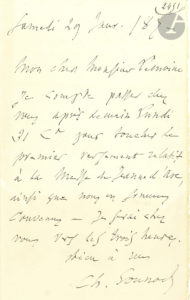 Samedi 29 Janv. 18
Mon cher Monsieur
Je compte passer chez
vous après demain Lundi
31 Ct pour toucher le
premier versement relatif
à la Messe de Jeanne d'Arc,
ainsi que nous en sommes
convenus — Je serai chez
vous vers les trois heures.
Bien à vous
Ch. Gounod